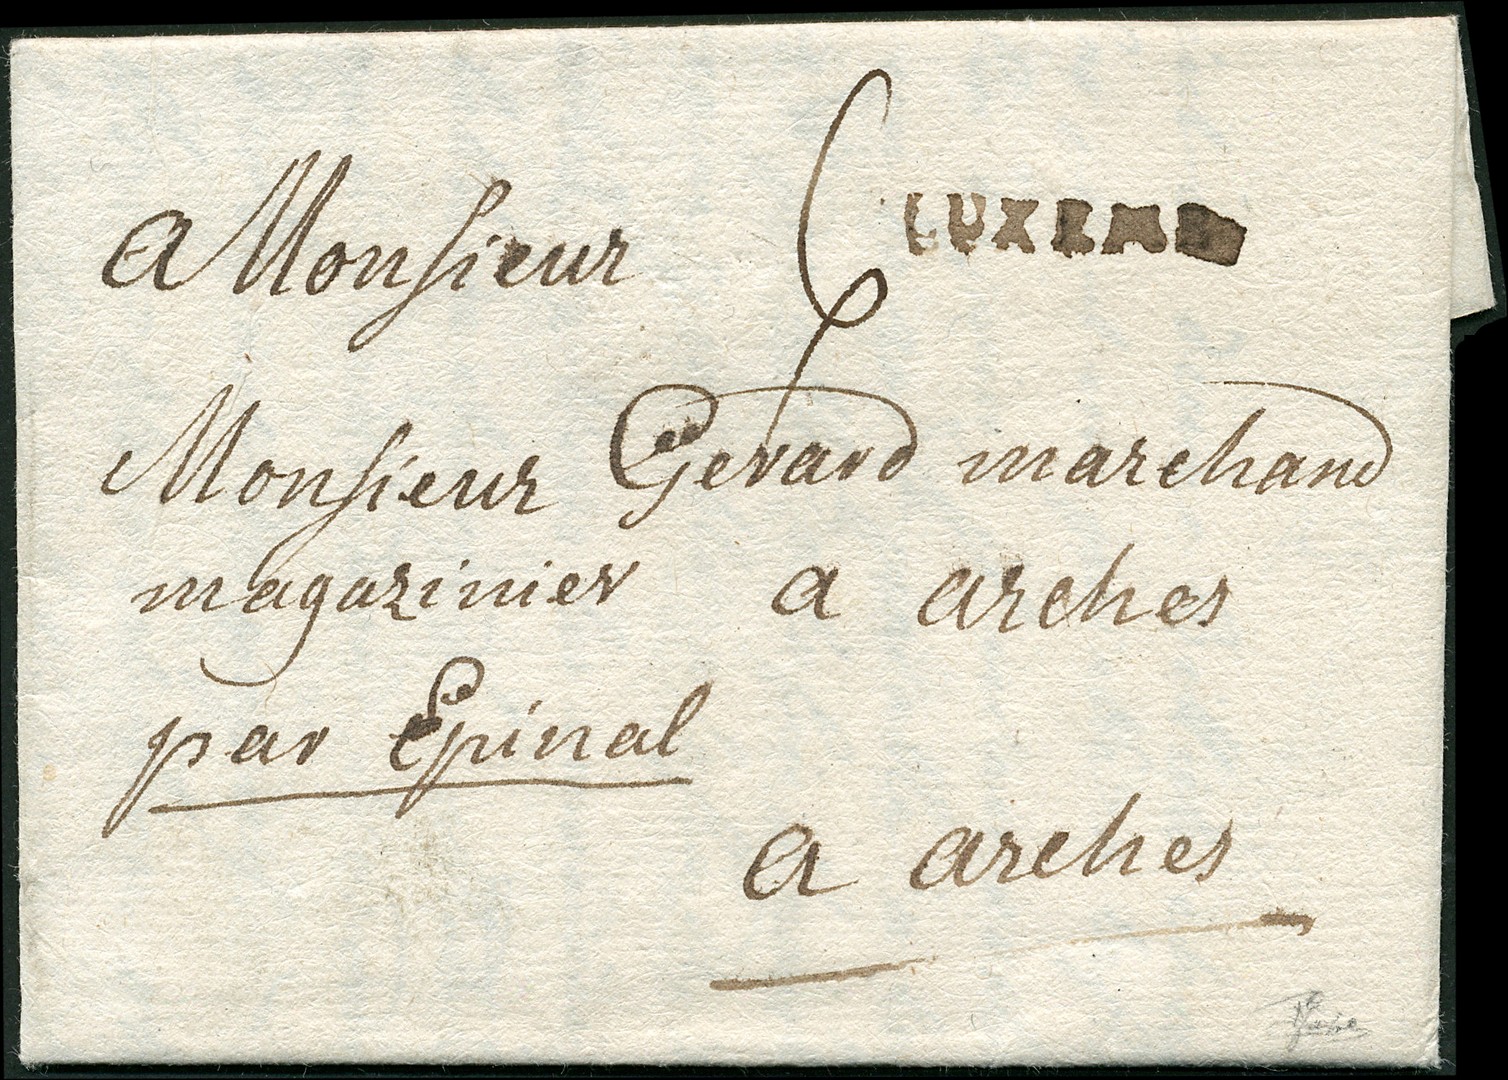 a Monsieur
6
LUXEMB
Monsieur Gerard marchand
magazinier a arches
par Epinal
a arches